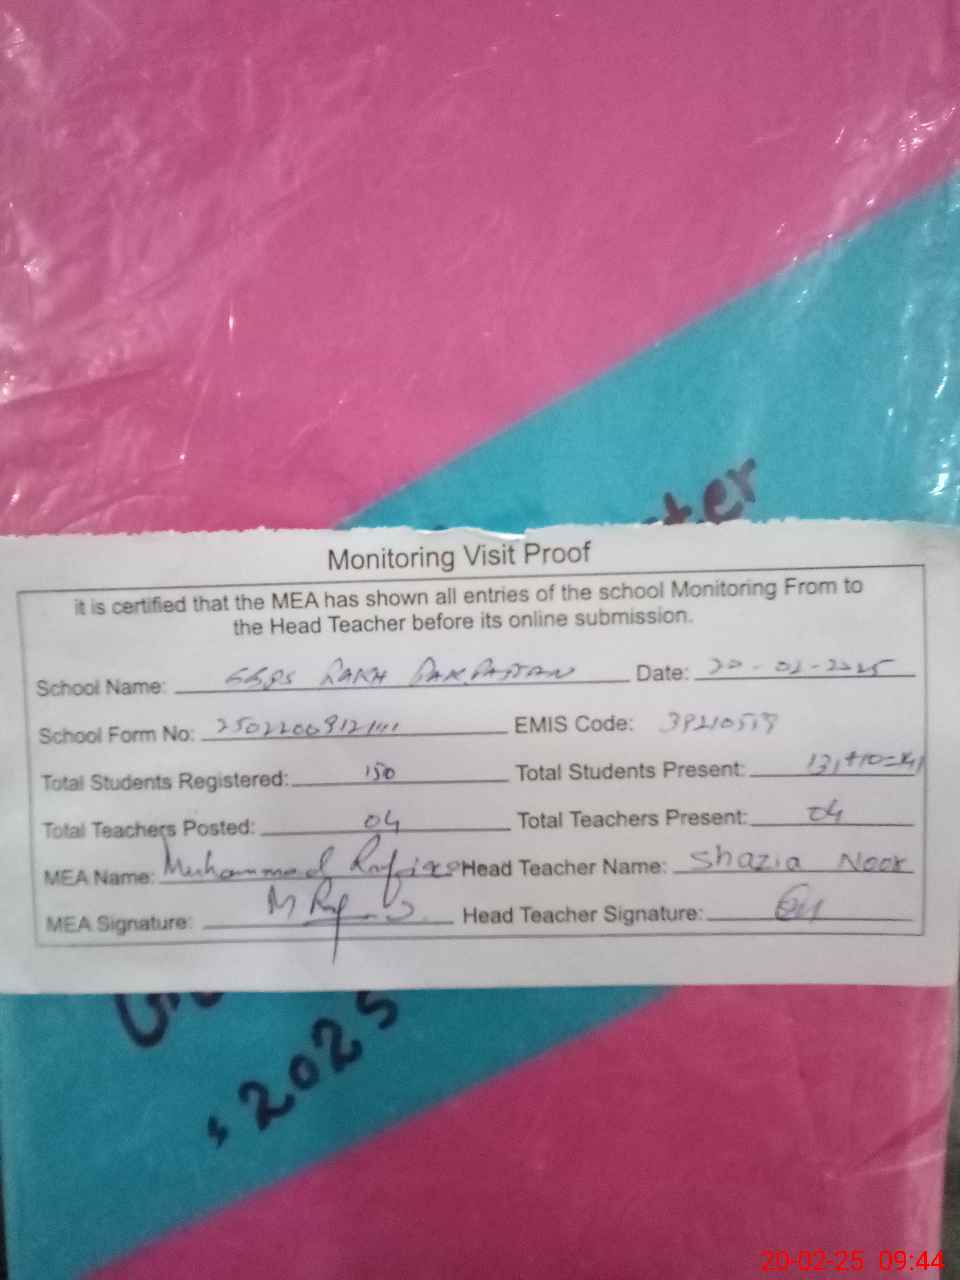 ter
Monitoring Visit Proof
it is certified that the MEA has shown all entries of the school Monitoring From to
the Head Teacher before its online submission.
School Name: GGPS RAKH PAKPATTAN Date: 20-02-2025
School Form No: EMIS Code:
Total Students Registered: 150 Total Students Present: 131+10=141
Total Teachers Posted: 04 Total Teachers Present: 04
MEA Name: Muhammad Rafique Head Teacher Name: Shazia Noor
MEA Signature: Head Teacher Signature:
2025
20-02-25 09:44